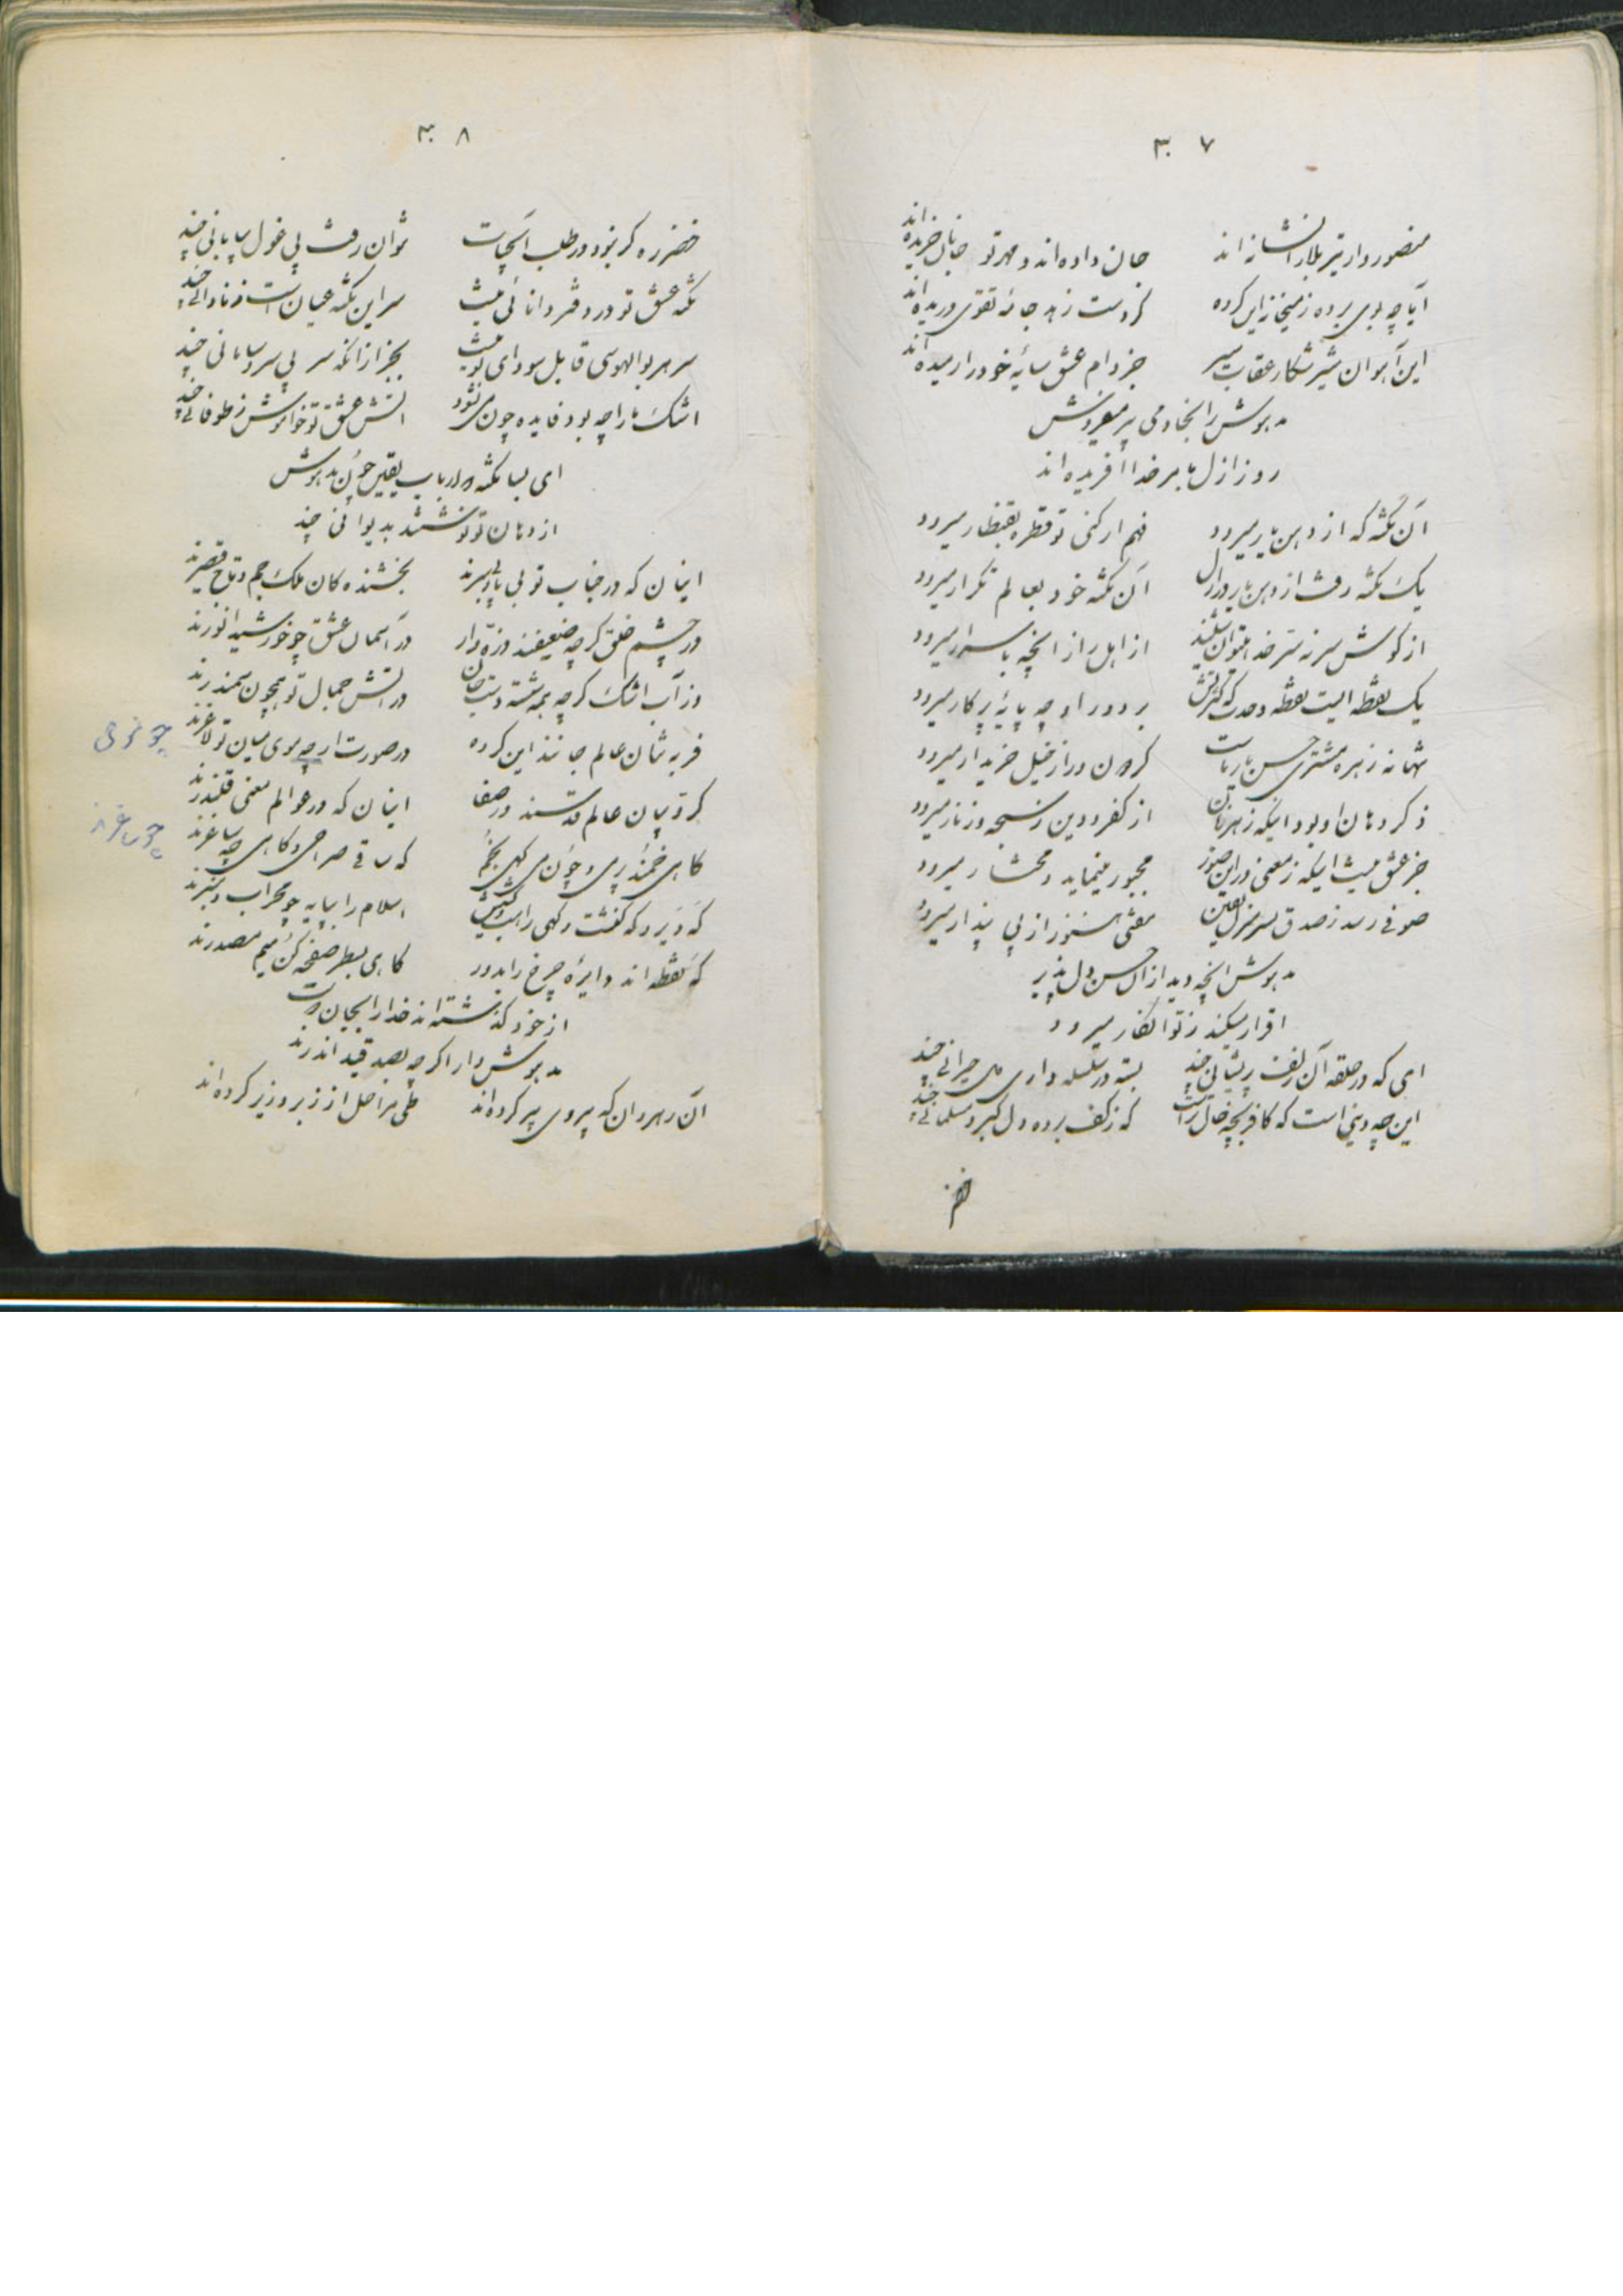 ۳۰۷
منصور وار تیر بلا را نشانه اند جان داده اند و مهر تو جانان خریده اند
آیا چه بوی برده ز میخانه این کرده کز دست زهد جامه تقوی دریده اند
این آهوان شیر شکار عقاب سیر جز دام عشق سایه خود را رمیده اند
مدهوش را بخادمی پیر میفروش
روز ازل بامر خدا آفریده اند
آن نکته که از دهن یار میرود فهم ار کنی تو قطره بقنطار میرود
یک نکته رفت از دهن یار در ازل آن نکته خود بعالم تکرار میرود
از گوش سر نه سر خدا میتوان شنید از اهل راز آنچه باسرار میرود
یک نقطه ایست نقطه وحدت که کثرتش بر دور او چه پایه پرگار میرود
تنها نه زهره مشتری حسن یار ماست گردون در از خیل خریدار میرود
ذکر دهان او بود اینکه ز هر زبان از کفر و دین ز سبحه و زنار میرود
جز عشق نیست اینکه ز معنی در این صور مجبور مینماید و مختار میرود
صوفی رسد ز صدق بسر منزل یقین مفتی هنوز از پی پندار میرود
مدهوش آنچه دید از آن حسن دل پذیر
اقرار میکند ز تو انکار میرود
ای که در حلقه آن زلف پریشانی چند بسته در سلسله داری دل حیرانی چند
این چه دینی است که کافر بچه خال تراست که ز کف برده دل گبر و مسلمانی چند
خضر
۳۰۸
خضر ره گر نبود در طلب آبحیات نتوان رفت پی غول بیابانی چند
نکته عشق تو در دفتر دانائی نیست سر این نکته عیان است ز نادانی چند
سر هر بوالهوسی قابل سودای تو نیست بجز از آنکه سر بی سر و سامانی چند
اشک ما را چه بود فایده چون می نشود آتش عشق تو خاموش ز طوفانی چند
ای بسا نکته در ارباب یقین چون مدهوش
از دهان تو نوشتند بدیوانی چند
اینان که در جناب تو بی پا و بی سرند بخشنده کان ملک جم و تاج قیصرند
در چشم خلق گر چه ضعیفند و ذره وار در آسمان عشق چو خورشید انورند
وز آب اشک گر چه همه شسته دست جان در آتش جمال تو همچون سمندرند
فربه تنان عالم جانند این کرده در صورت ار چه موی میان تو لاغرند
چو موی
کروبیان عالم قدسند در صفا اینان که در عوالم معنی قلندرند
گاهی خمند پر می و چون می گهی بخم که ساقی صراحی و گاهی چه ساغرند
چو ساغرند
که دیر و که کنشت و گهی راهب و کشیش اسلام را بپایه چو محراب و منبرند
که نقطه اند دایره چرخ را بدور گاهی بسطر صفحه کن میم مصدرند
از خود گذشته اند خدا را بجان و دست
مدهوش وار اگر چه بصد قید اندرند
آن رهروان که پیروی پیر کرده اند طی مراحل از زبر و زیر کرده اند